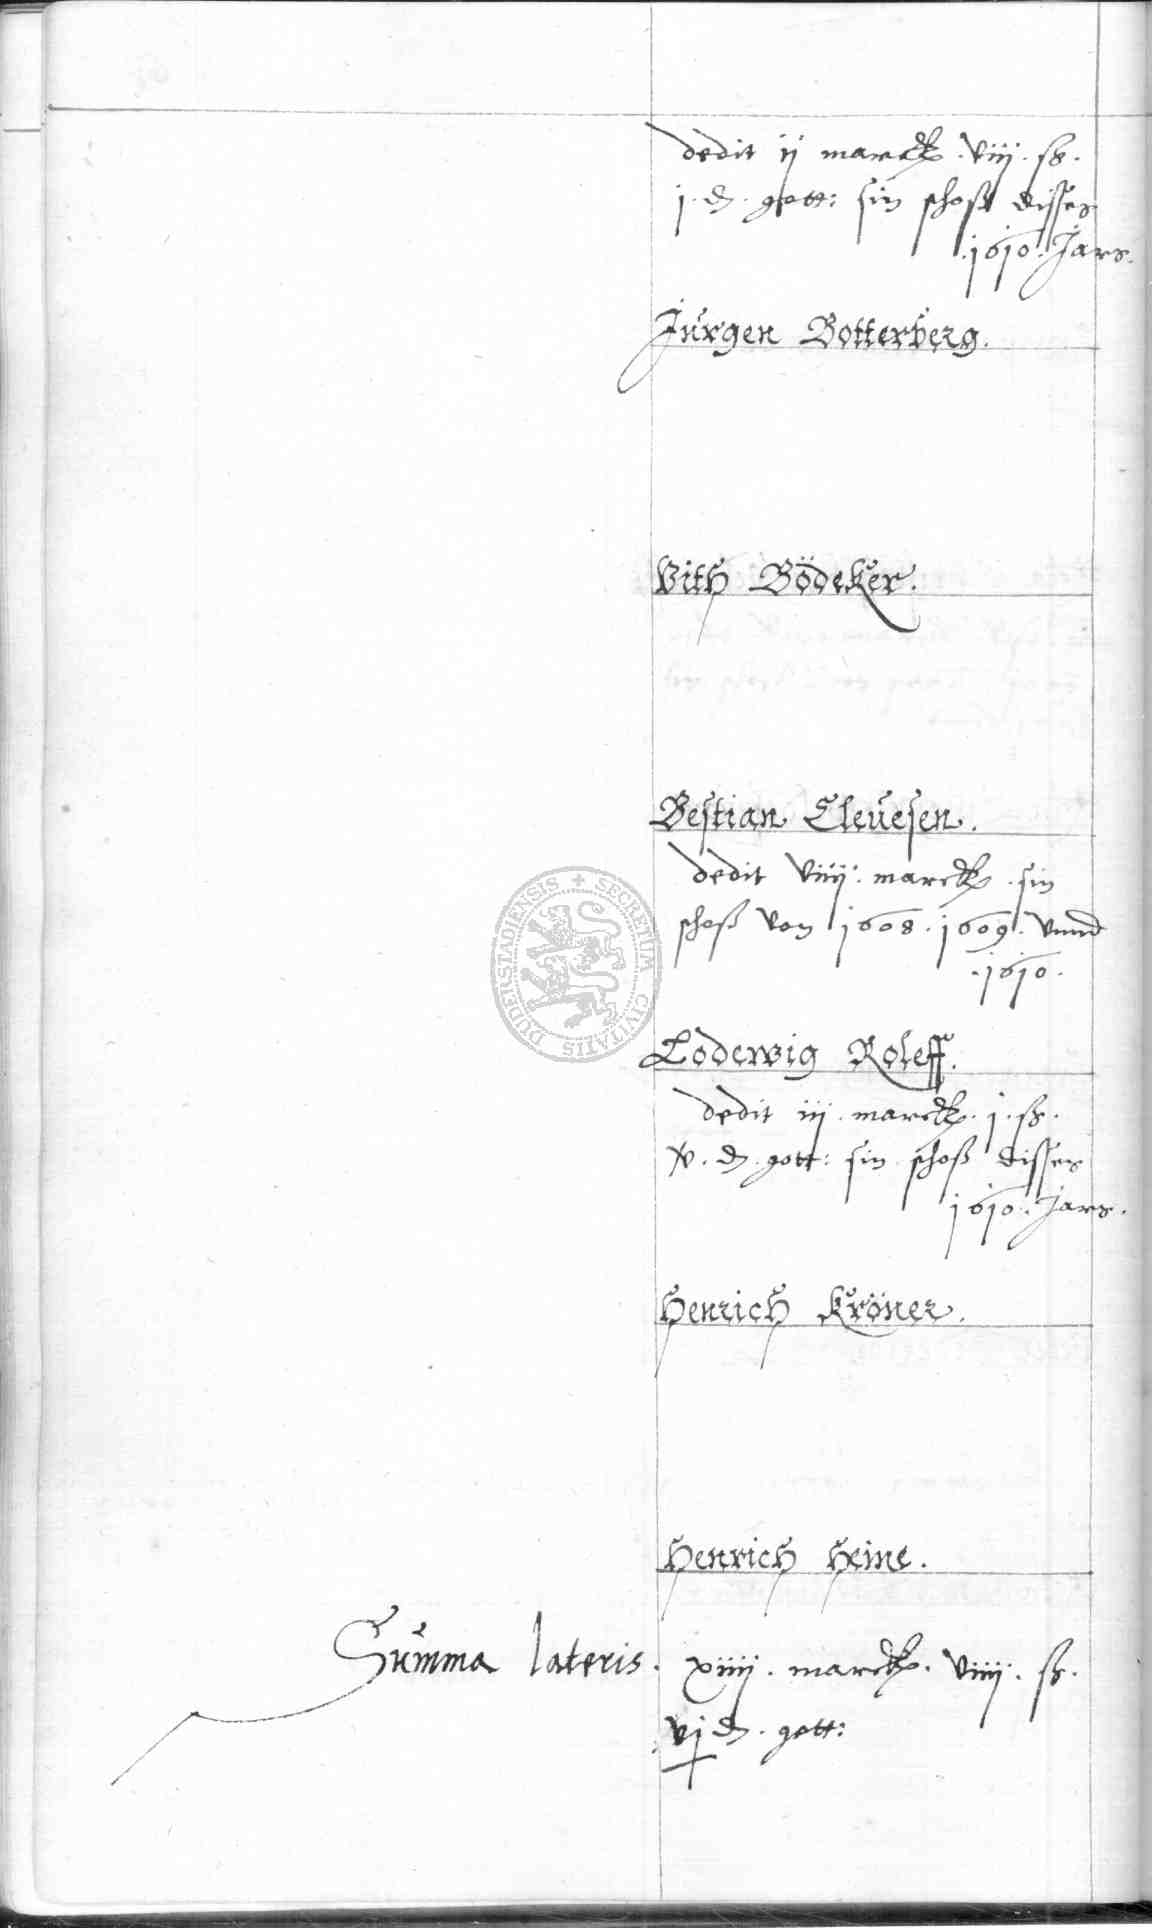 dedit ij marck . viij . ß .
j . d . gott: sin schoß disses
. 1610 . Jars .
Jürgen Botterberg .
Vith Bödeker .
Bestian Cleuesen .
dedit viiij . marck . sin
schoß von 1608 . 1609 . vnnd
. 1610 .
Lodewig Roleff .
dedit iij . marck . j . ß .
v . d . gott: sin schoß disses
1610 . Jars .
Henrich Kröner .
Henrich Heine .
Summa lateris . xiiij . marck . viiij . ß .
vj d . gott:
SECRETUM CIVITATIS DUDERSTADIENSIS